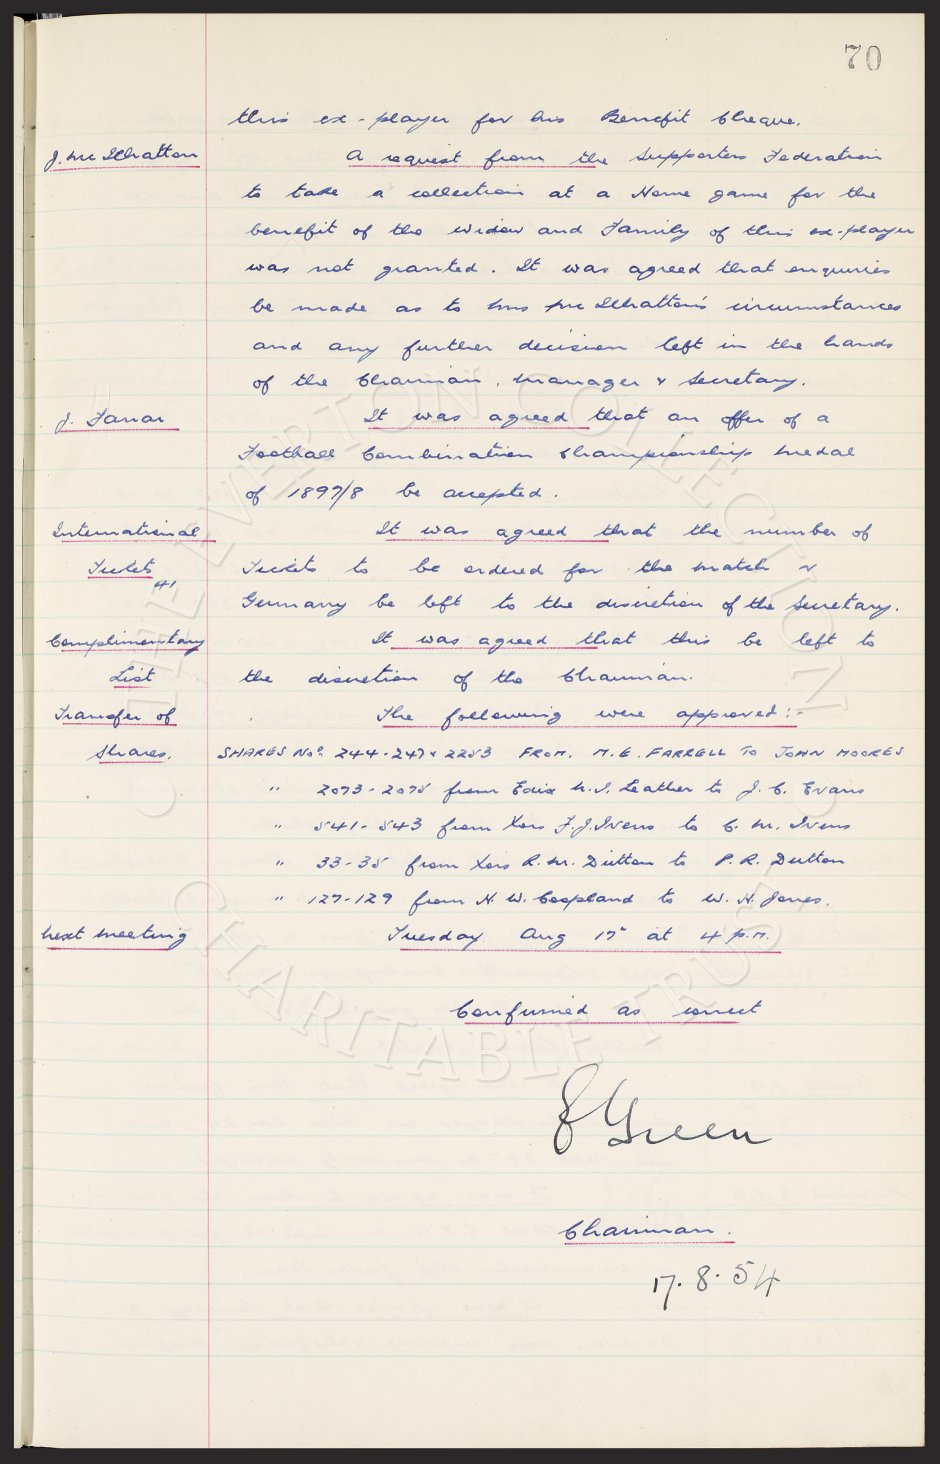 70
this ex-player for his Benefit Cheque.
J. Mc Ilhatton A request from the Supporters Federation
to take a collection at a Home game for the
benefit of the widow and Family of this ex-player
was not granted. It was agreed that enquiries
be made as to Mrs Mc Ilhatton's circumstances
and any further decision left in the hands
of the Chairman, Manager & Secretary.
J. Farrar It was agreed that an offer of a
Football Combination Championship Medal
of 1897/8 be accepted.
International It was agreed that the number of
Tickets Tickets to be ordered for the match v
41 Germany be left to the discretion of the Secretary.
Complimentary It was agreed that this be left to
List the discretion of the Chairman.
Transfer of The following were approved:-
Shares. SHARES Nos. 244-247 & 2253 FROM. M.E. FARRELL TO JOHN MOORES
" 2073-2075 from Edia M.I. Leather to J. C. Evans
" 541-543 from Xors F.J. Ivens to C. M. Ivens
" 33-35 from Xors R.M. Dutton to P. R. Dutton
" 127-129 from H. W. Coopland to W. H. Jones.
Next Meeting Tuesday Aug 17" at 4 p.m.
Confirmed as correct
Green
Chairman.
17.8.54
THE EVERTON COLLECTION
CHARITABLE TRUST